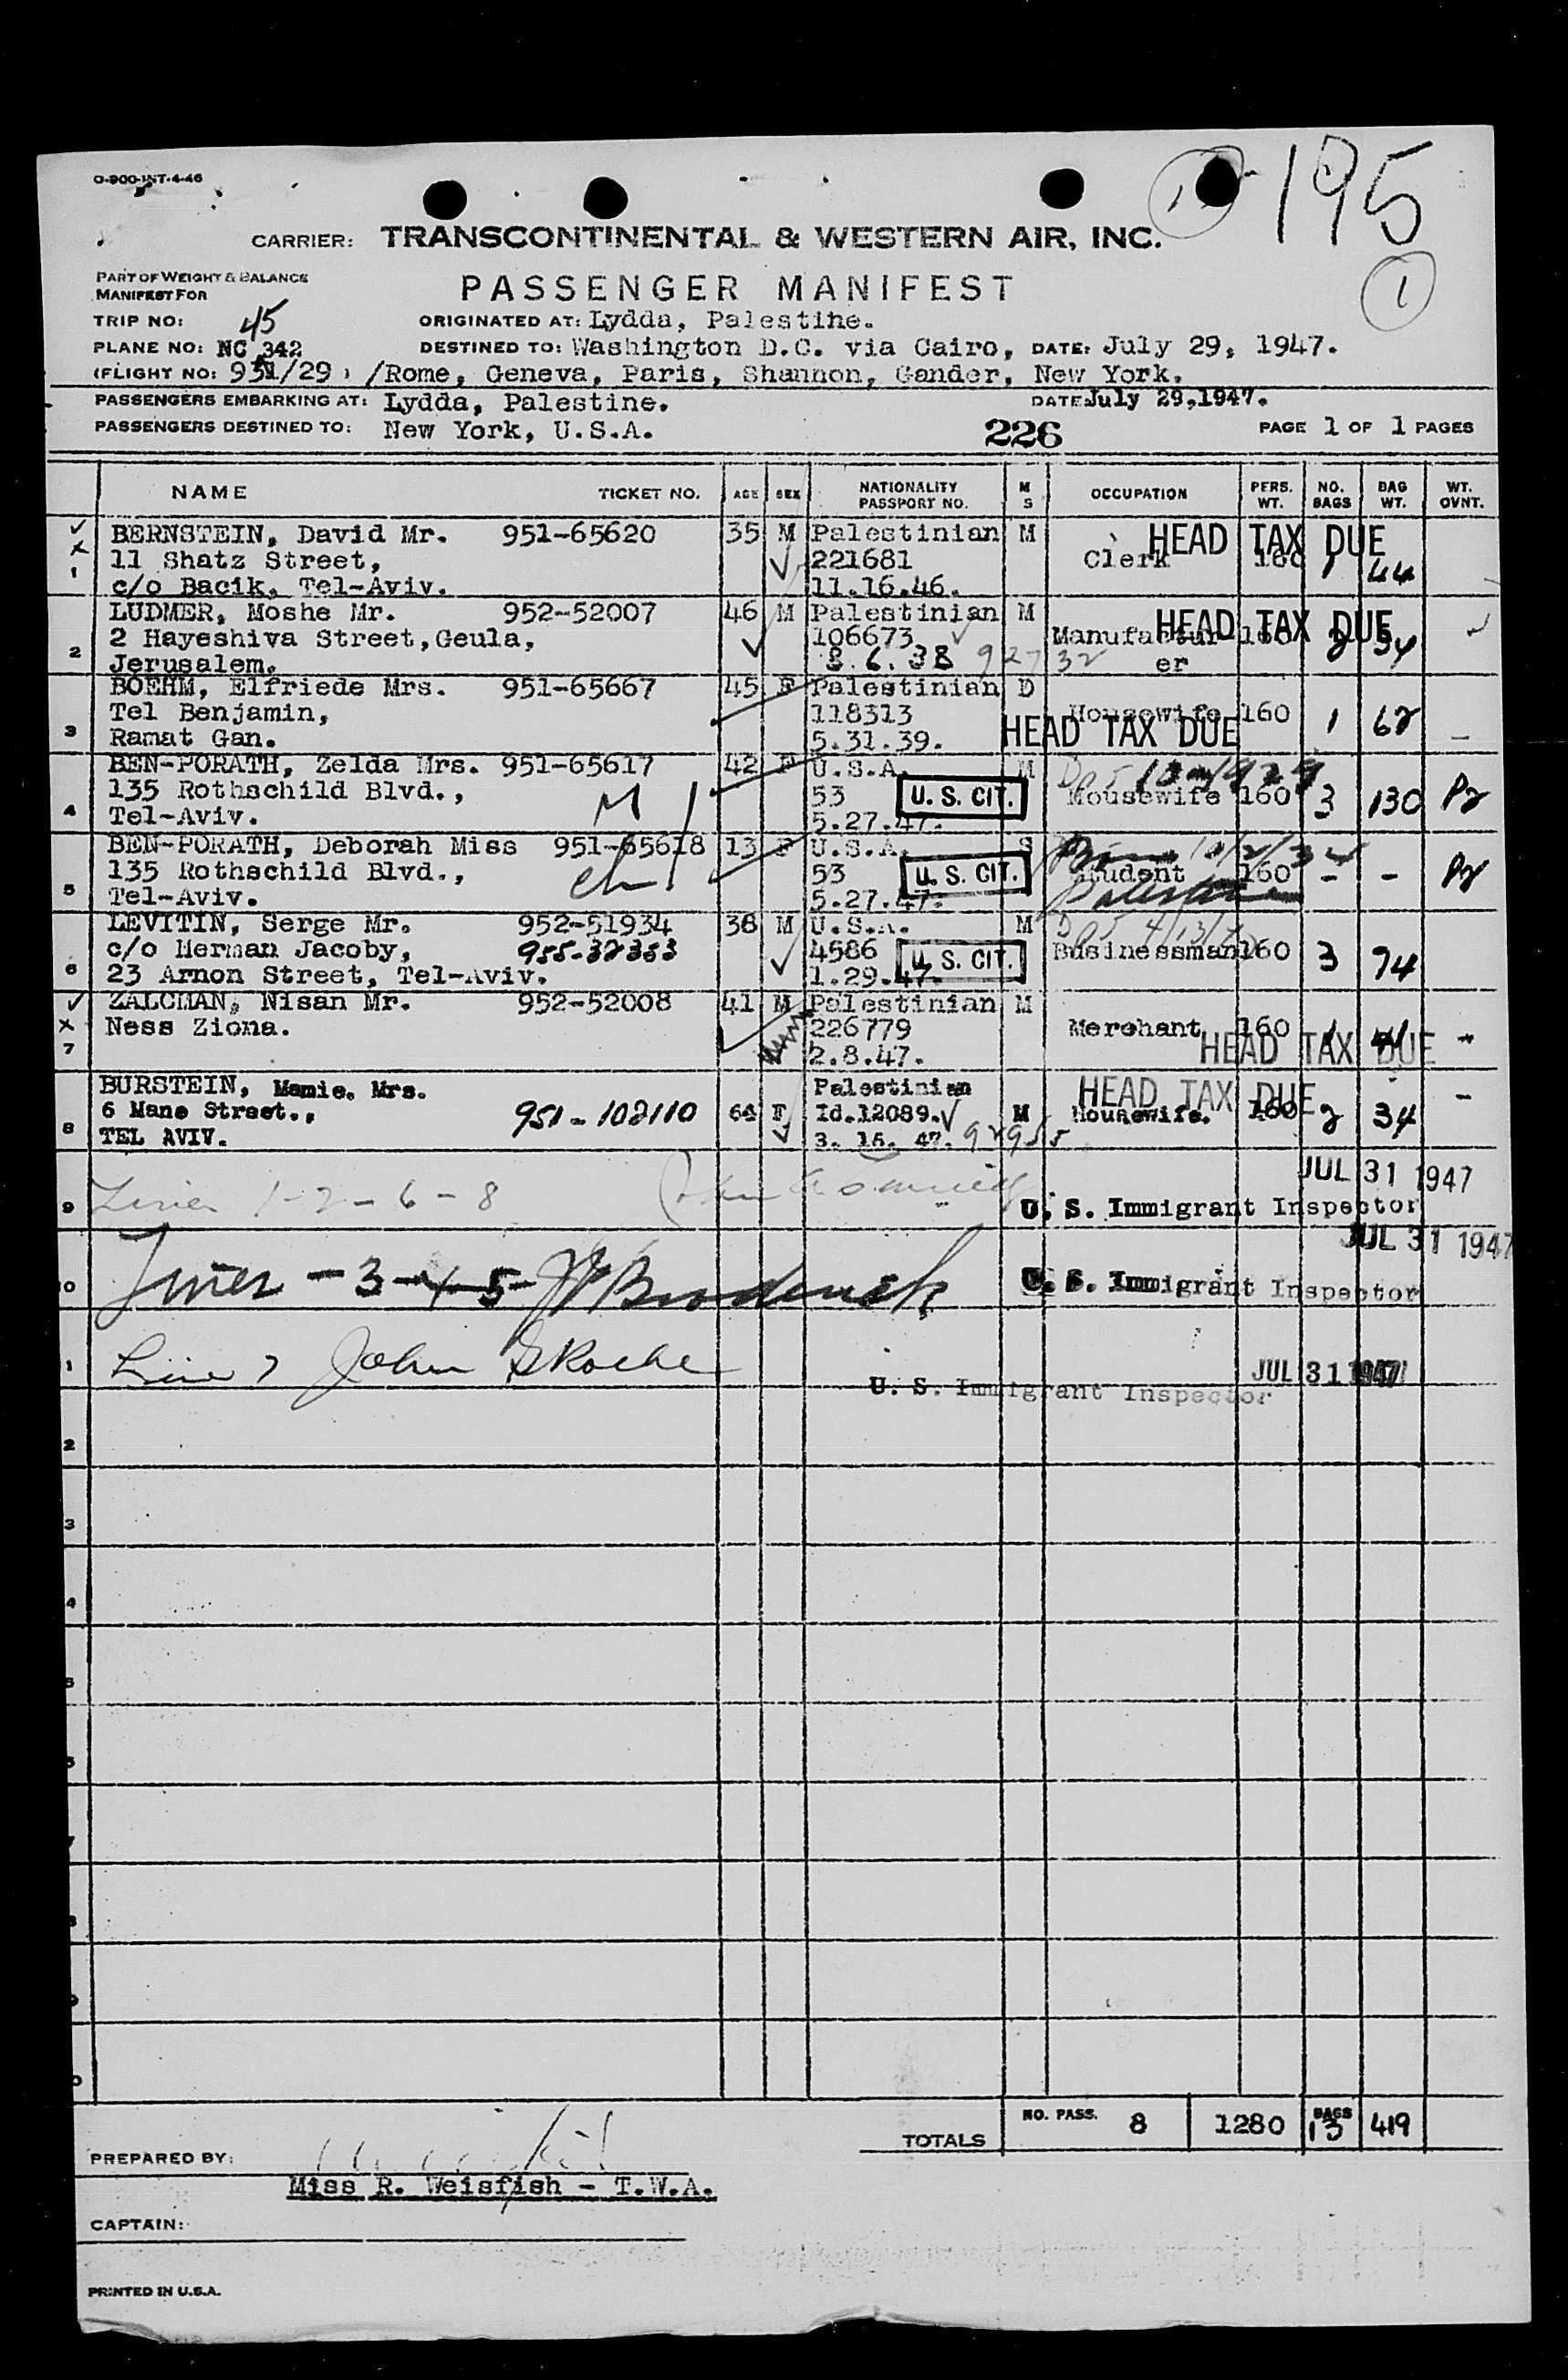 O-900-INT-4-46
195
1
CARRIER: TRANSCONTINENTAL & WESTERN AIR, INC.
PART OF WEIGHT & BALANCE
MANIFEST FOR
PASSENGER MANIFEST
TRIP NO: 45 ORIGINATED AT: Lydda, Palestine.
PLANE NO: NC 342 DESTINED TO: Washington D.C. via Cairo, DATE: July 29, 1947.
(FLIGHT NO: 951/29) /Rome, Geneva, Paris, Shannon, Gander, New York.
PASSENGERS EMBARKING AT: Lydda, Palestine. DATE July 29,1947.
PASSENGERS DESTINED TO: New York, U.S.A. 226 PAGE 1 OF 1 PAGES
NAME TICKET NO. AGE SEX NATIONALITY PASSPORT NO. M S OCCUPATION PERS. WT. NO. BAGS BAG WT. WT. OVNT.
BERNSTEIN, David Mr. 951-65620 35 M Palestinian M HEAD TAX DUE
11 Shatz Street, 221681 Clerk 160 1 44
1 c/o Bacik, Tel-Aviv. 11.16.46.
LUDMER, Moshe Mr. 952-52007 46 M Palestinian M HEAD TAX DUE
2 Hayeshiva Street,Geula, 106673 Manufactur- 160 2 34
2 Jerusalem. 8.6.38 92732 er
BOEHM, Elfriede Mrs. 951-65667 45 F Palestinian D
Tel Benjamin, 118313 Housewife 160 1 62 -
3 Ramat Gan. 5.31.39. HEAD TAX DUE
BEN-PORATH, Zelda Mrs. 951-65617 42 F U.S.A. M
135 Rothschild Blvd., M 53 U. S. CIT. Housewife 160 3 130
4 Tel-Aviv. 5.27.47.
BEN-PORATH, Deborah Miss 951-65618 13 F U.S.A. S
135 Rothschild Blvd., 53 U. S. CIT. Student 160 - -
5 Tel-Aviv. 5.27.47. Palestine
LEVITIN, Serge Mr. 952-51934 38 M U.S.A. M
c/o Herman Jacoby, 955-32353 4586 U. S. CIT. Businessman 160 3 74
6 23 Arnon Street, Tel-Aviv. 1.29.47.
ZALCMAN, Nisan Mr. 952-52008 41 M Palestinian M
Ness Ziona. 226779 Merchant 160 1 41 -
7 2.8.47. HEAD TAX DUE
BURSTEIN, Mamie. Mrs. Palestinian HEAD TAX DUE -
6 Mane Street., 951-102110 64 F Id.12089. M Housewife. 160 2 34
8 TEL AVIV. 3. 16. 47. 92955
JUL 31 1947
9 Lines 1-2-6-8 U. S. Immigrant Inspector
JUL 31 1947
10 Lines - 3-4-5- Broderick U. S. Immigrant Inspector
1 Line 7 John Roche JUL 31 1947
U. S. Immigrant Inspector
2
3
4
TOTALS NO. PASS. 8 1280 BAGS 13 419
PREPARED BY:
Miss R. Weisfish - T.W.A.
CAPTAIN:
PRINTED IN U.S.A.